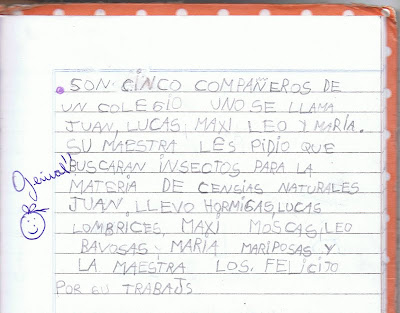 SON CINCO COMPAÑEROS DE
UN COLEGIO UNO SE LLAMA
JUAN, LUCAS, MAXI LEO Y MARÍA.
SU MAESTRA LES PIDIO QUE
BUSCARAN INSECTOS PARA LA
MATERIA DE CENSIAS NATURALES
JUAN LLEVO HORMIGAS, LUCAS
LOMBRICES, MAXI MOSCAS, LEO
BAVOSAS, MARIA MARIPOSAS Y
LA MAESTRA LOS, FELICITO
POR SU TRABAJS
Genial!!